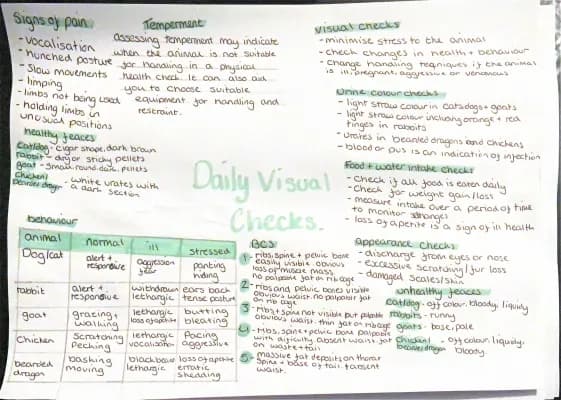 Signs of pain
- Vocalisation
- hunched posture
- Slow movements
- limping
- limbs not being used
- holding limbs in
unusual positions
Temperment
assessing temperment may indicate
when the animal is not suitable
for handling in a physical
health check. It can also aid
you to choose suitable
equipment for handling and
restraint.
Visual Checks
- minimise stress to the animal
- check changes in health + behaviour
- change handling techniques if the animal
is ill, pregnant, aggressive or venomous
Urine colour checks
- light straw colour in cats, dogs + goats
- light straw colour including orange + red
tinges in rabbits
- urates in bearded dragons and chickens
- blood or pus is an indication of infection
healthy faeces
Cat/dog - cigar shape, dark brown
rabbit - dry or sticky pellets
goat - small round dark pellets
Chicken/
bearded dragon - white urates with
a dark section
Daily Visual
Checks.
Food + water intake checks
- check if all food is eaten daily
- Check for weight gain/loss
- measure intake over a period of time
to monitor changes
- loss of apetite is a sign of ill health
behaviour
animal normal ill stressed
Dog/cat alert + responsive aggression fear panting hiding
rabbit alert + responsive withdrawn lethargic ears back tense posture
goat grazing + walking lethargic loss of apetite butting bleating
Chicken Scratching Pecking lethargic vocalisation aggressive
bearded dragon basking moving lethargic loss of apetite erratic shedding
BCS
1 - ribs, spine + pelvic bone
easily visible obvious
loss of muscle mass
no palpable fat on rib cage
2 - ribs and pelvic bones visible
obvious waist. no palpable fat
on rib cage
3 - ribs + spine not visible but palpable
obvious waist. thin fat on ribcage
4 - ribs, spine + pelvic bone palpable
with difficulty. absent waist. fat
on waste + tail
5 - massive fat deposits on thorax
spine + base of tail. absent
waist.
appearance checks
- discharge from eyes or nose
- excessive scratching/fur loss
- damaged scales/skin
unhealthy faeces
Cat/dog - off colour, bloody, liquidy
rabbits - runny
goats - loose, pale
Chicken/ bearded dragon - off colour, liquidy,
bloody.